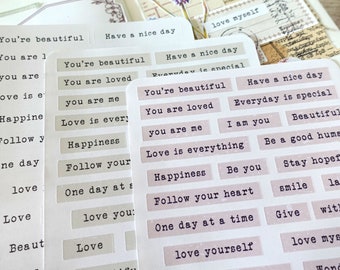 love myself
You're beautiful Have a nice day
You are
You are
Love is e
Happiness
Follow
One
love
Beaut
You're beautiful Have a nice day
You are loved Everyday is special
you are me
Love is every
Happiness
Follow your
One day at a
love your
Love
You're beautiful Have a nice day
You are loved Everyday is special
you are me I am you Beautiful
Love is everything Be a good huma
Happiness Be you Stay hopef
Follow your heart smile la
One day at a time Give with
love yourself love mys